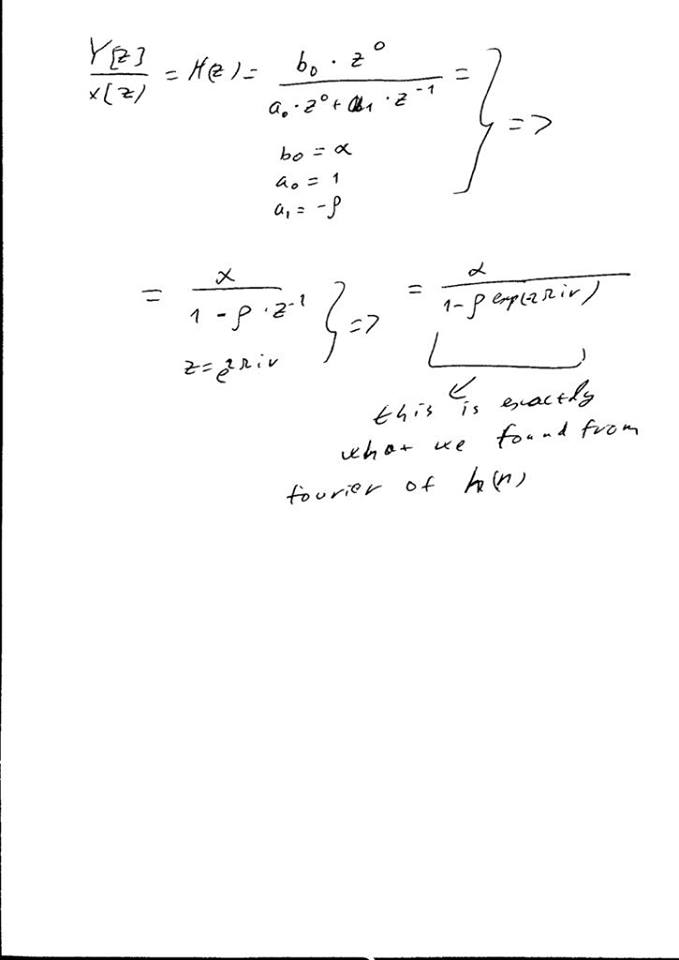 Y[z] / x[z) = H(z) = b₀ · z⁰ / a₀ · z⁰ + a₁ · z⁻¹ = } =>
b₀ = α
a₀ = 1
a₁ = -ρ
= α / 1 - ρ · z⁻¹ } => = α / 1 - ρ exp(-2πiν)
z = e^2πiν
this is exactly
what we found from
fourier of h(n)